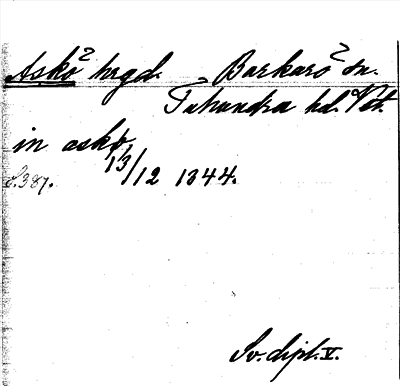 Askö hrgd. Barkarö sn.
Tuhundra hd. Vstm.
in askø,
13/12 1344.
S. 387.
Sv. dipl. V.